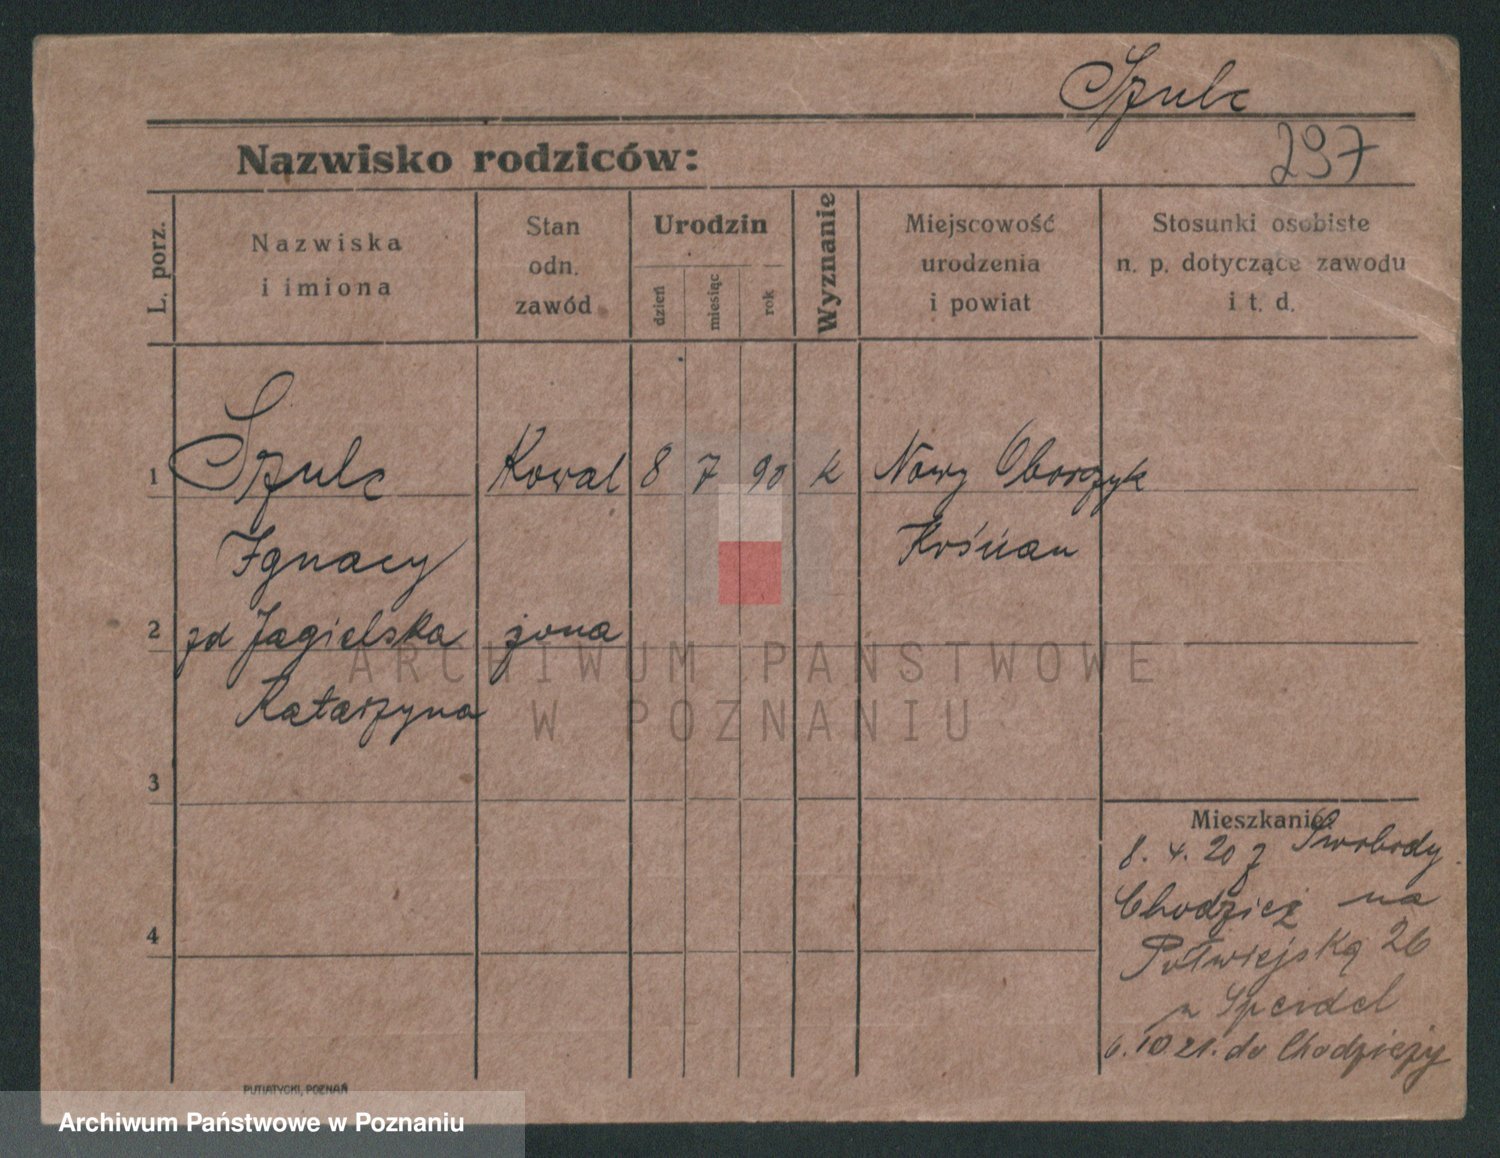 Szulc
297
Nazwisko rodziców:
L. porz.
Nazwiska
i imiona
Stan
odn.
zawód
Urodzin
dzień
miesiąc
rok
Wyznanie
Miejscowość
urodzenia
i powiat
Stosunki osobiste
n. p. dotyczące zawodu
i t. d.
1 Szulc Kowal 8 7 90 k Nowy Oborzyk
Ignacy Kośćian
2 zd Jagielska żona
Katarzyna
3
4
Mieszkanie
8. 4. 20 z Swobody
Chodzież na
Półwiejską 26
Speidel
6. 10 21. do Chodzieży
PUTIATYCKI, POZNAŃ
ARCHIWUM PAŃSTWOWE
W POZNANIU
Archiwum Państwowe w Poznaniu